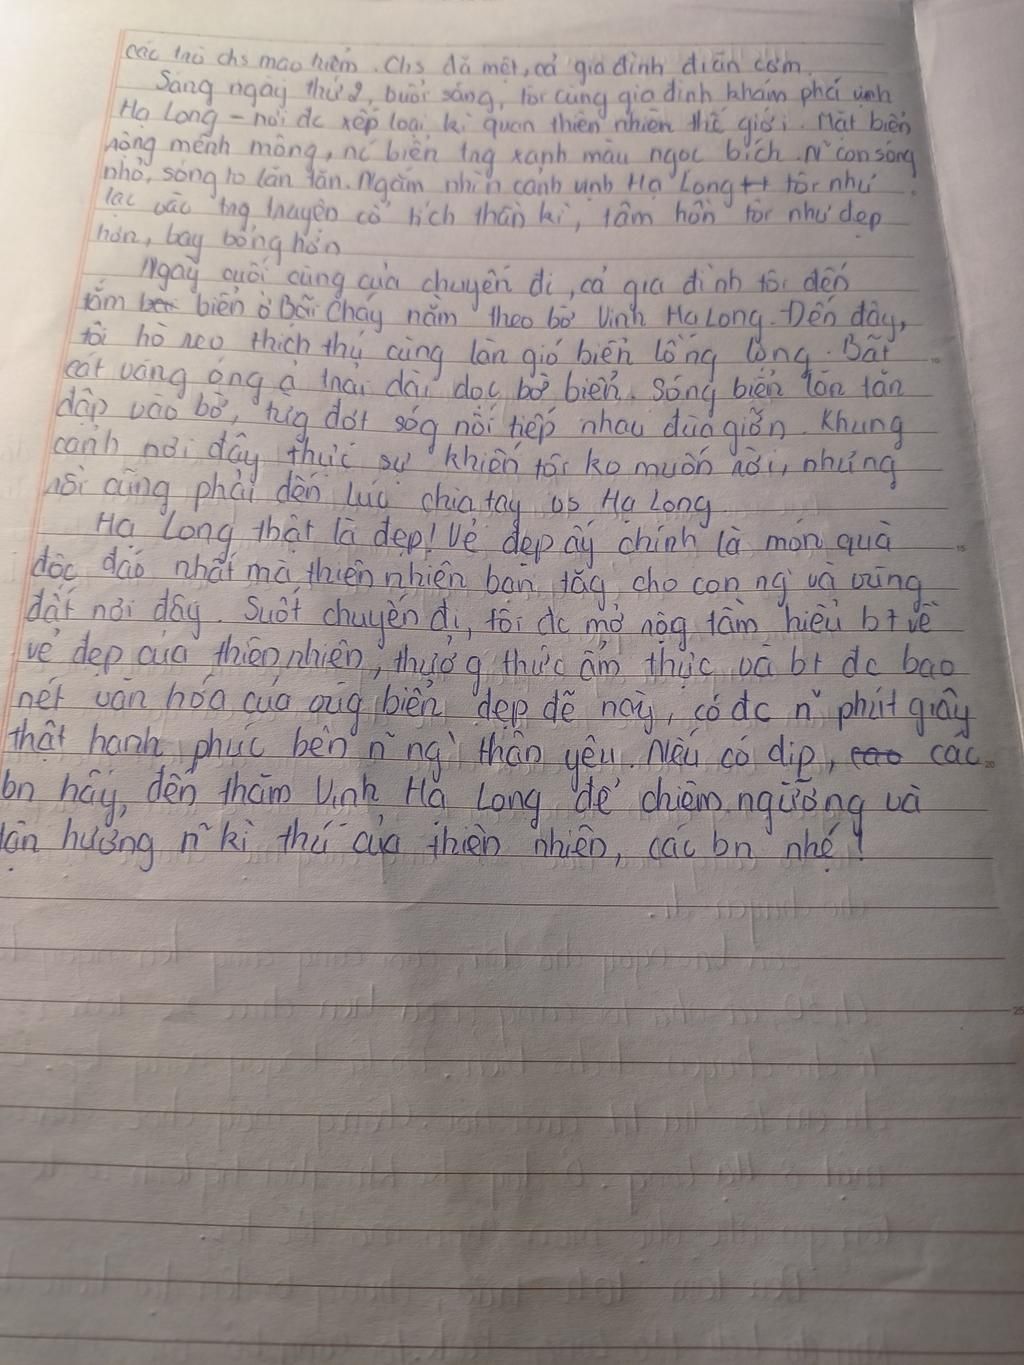 các trò chs mạo hiểm. Chs đã mệt, cả gia đình đi ăn cơm.
Sáng ngày thứ 2, buổi sáng, tôi cùng gia đình khám phá vịnh
Hạ Long - nơi đc xếp loại kì quan thiên nhiên thế giới. Mặt biển
rộng mênh mông, nc biển tng xanh màu ngọc bích. N~ con sóng
nhỏ, sóng to lăn tăn. Ngắm nhìn cảnh vịnh Hạ Long tôi như
lạc vào tng truyện cổ tích thần kì, tâm hồn tôi như đẹp
hơn, bay bổng hơn
Ngày cuối cùng của chuyến đi, cả gia đình tôi đến
tắm biển ở Bãi Cháy nằm theo bờ Vịnh Hạ Long. Đến đây,
tôi hò reo thích thú cùng làn gió biển lồng lộng. Bãi
cát vàng óng ả trải dài dọc bờ biển. Sóng biển lăn tăn
đập vào bờ, từg đợt sóg nối tiếp nhau đùa giỡn. Khung
cảnh nơi đây thực sự khiến tôi ko muốn rời, nhưng
rồi cũng phải đến lúc chia tay vs Hạ Long
Hạ Long thật là đẹp! Vẻ đẹp ấy chính là món quà
độc đáo nhất mà thiên nhiên ban tặg cho con ng` và vùng
đất nơi đây. Suốt chuyến đi, tôi đc mở rộg tầm hiểu bt về
vẻ đẹp của thiên nhiên, thưởg thức ẩm thực và bt đc bao
nét văn hóa của vùg biển đẹp đẽ này, có đc n~ phút giây
thật hạnh phúc bên n~ ng` thân yêu. Nếu có dịp, các
bn hãy, đến thăm Vịnh Hạ Long để chiêm ngưỡng và
tận hưởng n~ kì thú của thiên nhiên, các bn nhé!